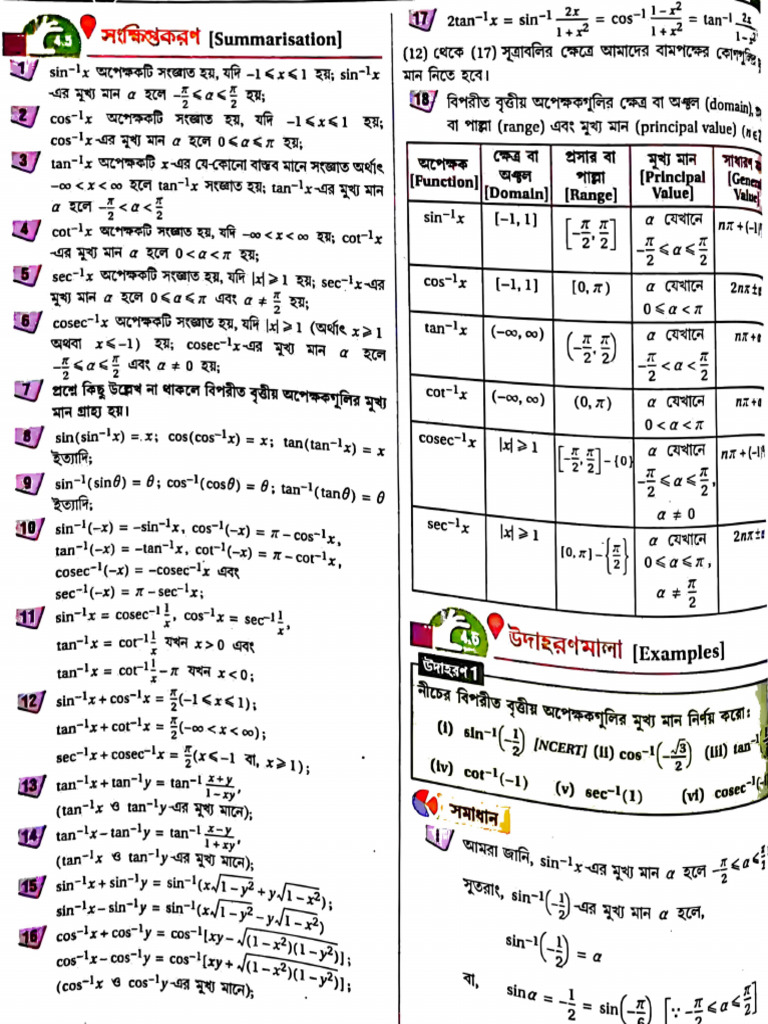 4.5 সংক্ষিপ্তকরণ [Summarisation]
1 sin⁻¹x অপেক্ষকটি সংজ্ঞাত হয়, যদি −1⩽x⩽1 হয়; sin⁻¹x
-এর মুখ্য মান α হলে −π/2⩽α⩽π/2 হয়;
2 cos⁻¹x অপেক্ষকটি সংজ্ঞাত হয়, যদি −1⩽x⩽1 হয়;
cos⁻¹x-এর মুখ্য মান α হলে 0⩽α⩽π হয়;
3 tan⁻¹x অপেক্ষকটি x-এর যে-কোনো বাস্তব মানে সংজ্ঞাত অর্থাৎ
−∞<x<∞ হলে tan⁻¹x সংজ্ঞাত হয়; tan⁻¹x-এর মুখ্য মান
α হলে −π/2<α<π/2
4 cot⁻¹x অপেক্ষকটি সংজ্ঞাত হয়, যদি −∞<x<∞ হয়; cot⁻¹x
-এর মুখ্য মান α হলে 0<α<π হয়;
5 sec⁻¹x অপেক্ষকটি সংজ্ঞাত হয়, যদি |x|⩾1 হয়; sec⁻¹x-এর
মুখ্য মান α হলে 0⩽α⩽π এবং α≠π/2 হয়;
6 cosec⁻¹x অপেক্ষকটি সংজ্ঞাত হয়, যদি |x|⩾1 (অর্থাৎ x⩾1
অথবা x⩽−1) হয়; cosec⁻¹x-এর মুখ্য মান α হলে
−π/2⩽α⩽π/2 এবং α≠0 হয়;
7 প্রশ্নে কিছু উল্লেখ না থাকলে বিপরীত বৃত্তীয় অপেক্ষকগুলির মুখ্য
মান গ্রাহ্য হয়।
8 sin(sin⁻¹x) = x; cos(cos⁻¹x) = x; tan(tan⁻¹x) = x
ইত্যাদি;
9 sin⁻¹(sinθ) = θ; cos⁻¹(cosθ) = θ; tan⁻¹(tanθ) = θ
ইত্যাদি;
10 sin⁻¹(−x) = −sin⁻¹x, cos⁻¹(−x) = π−cos⁻¹x,
tan⁻¹(−x) = −tan⁻¹x, cot⁻¹(−x) = π−cot⁻¹x,
cosec⁻¹(−x) = −cosec⁻¹x এবং
sec⁻¹(−x) = π−sec⁻¹x;
11 sin⁻¹x = cosec⁻¹ 1/x, cos⁻¹x = sec⁻¹ 1/x,
tan⁻¹x = cot⁻¹ 1/x যখন x>0 এবং
tan⁻¹x = cot⁻¹ 1/x −π যখন x<0;
12 sin⁻¹x+cos⁻¹x = π/2(−1⩽x⩽1);
tan⁻¹x+cot⁻¹x = π/2(−∞<x<∞);
sec⁻¹x+cosec⁻¹x = π/2(x⩽−1 বা, x⩾1);
13 tan⁻¹x+tan⁻¹y = tan⁻¹ (x+y)/(1−xy),
(tan⁻¹x ও tan⁻¹y-এর মুখ্য মানে);
14 tan⁻¹x−tan⁻¹y = tan⁻¹ (x−y)/(1+xy),
(tan⁻¹x ও tan⁻¹y-এর মুখ্য মানে);
15 sin⁻¹x+sin⁻¹y = sin⁻¹(x√(1−y²)+y√(1−x²));
sin⁻¹x−sin⁻¹y = sin⁻¹(x√(1−y²)−y√(1−x²))
16 cos⁻¹x+cos⁻¹y = cos⁻¹[xy−√((1−x²)(1−y²))];
cos⁻¹x−cos⁻¹y = cos⁻¹[xy+√((1−x²)(1−y²))];
(cos⁻¹x ও cos⁻¹y-এর মুখ্য মানে);
17 2tan⁻¹x = sin⁻¹ 2x/(1+x²) = cos⁻¹ (1−x²)/(1+x²) = tan⁻¹ 2x/1−
(12) থেকে (17) সূত্রাবলির ক্ষেত্রে আমাদের বামপক্ষের
মান নিতে হবে।
18 বিপরীত বৃত্তীয় অপেক্ষকগুলির ক্ষেত্র বা অঞ্চল (domain),
বা পাল্লা (range) এবং মুখ্য মান (principal value)
অপেক্ষক [Function] ক্ষেত্র বা অঞ্চল [Domain] প্রসার বা পাল্লা [Range] মুখ্য মান [Principal Value]
sin⁻¹x [−1, 1] [−π/2, π/2] α যেখানে −π/2⩽α⩽π/2 nπ+(−1)
cos⁻¹x [−1, 1] [0, π) α যেখানে 0⩽α<π 2nπ±
tan⁻¹x (−∞, ∞) (−π/2, π/2) α যেখানে −π/2<α<π/2 nπ+
cot⁻¹x (−∞, ∞) (0, π) α যেখানে 0<α<π nπ+
cosec⁻¹x |x|⩾1 [−π/2, π/2]−{0} α যেখানে −π/2⩽α⩽π/2, α≠0 nπ+(−1)
sec⁻¹x |x|⩾1 [0, π]−{π/2} α যেখানে 0⩽α⩽π, α≠π/2 2nπ±
4.6 উদাহরণমালা [Examples]
উদাহরণ 1
নীচের বিপরীত বৃত্তীয় অপেক্ষকগুলির মুখ্য মান নির্ণয় করো:
(i) sin⁻¹(−1/2) [NCERT] (ii) cos⁻¹(−√3/2) (iii) tan⁻¹
(iv) cot⁻¹(−1) (v) sec⁻¹(1) (vi) cosec⁻¹(
সমাধান
i আমরা জানি, sin⁻¹x-এর মুখ্য মান α হলে −π/2⩽α⩽
সুতরাং, sin⁻¹(−1/2)-এর মুখ্য মান α হলে,
sin⁻¹(−1/2) = α
বা, sinα = −1/2 = sin(−π/6) [∵ −π/2⩽α⩽π/2]